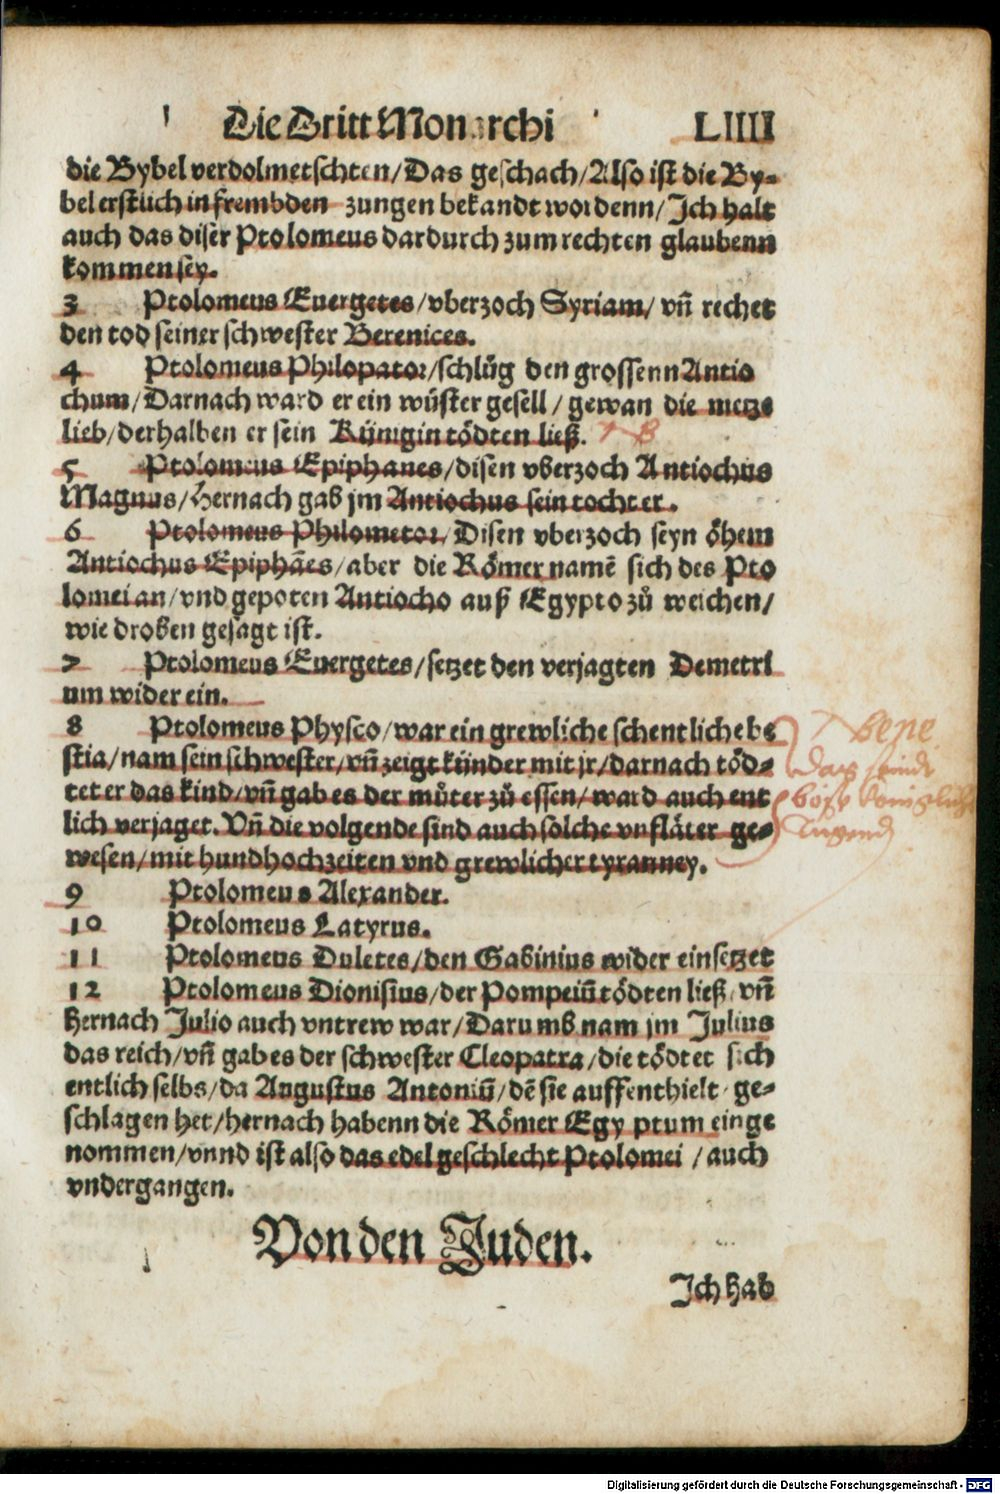 Die Dritt Monarchi LIIII
die Bybel verdolmetschten/Das geschach/Also ist die By⸗
bel erstlich in frembden zungen bekandt wordenn/Ich halt
auch das diser Ptolomeus dardurch zum rechten glaubenn
kommen sey.
3 Ptolomeus Euergetes/vberzoch Syriam/vñ rechet
den tod seiner schwester Berenices.
4 Ptolomeus Philopator/schlůg den grossenn Antio
chum/Darnach ward er ein wüster gesell/gewan die metze
lieb/derhalben er sein Künigin tödten ließ.
5 Ptolomeus Epiphanes/disen vberzoch Antiochus
Magnus/Hernach gab jm Antiochus sein tochter.
6 Ptolomeus Philometor/Disen vberzoch seyn öhem
Antiochus Epiphães/aber die Römer namẽ sich des Pto
lomei an/vnd gepoten Antiocho auß Egypto zů weichen/
wie droben gesagt ist.
7 Ptolomeus Euergetes/setzet den verjagten Demetri
um wider ein.
8 Ptolomeus Physco/war ein grewliche schentliche be
stia/nam sein schwester/vñ zeigt kinder mit jr/darnach töd⸗
tet er das kind/vñ gab es der můter zů essen/ward auch ent
lich verjaget. Vñ die volgende sind auch solche vnfläter ge⸗
wesen/mit hundhochzeiten vnd grewlicher tyranney.
bene
das seindt
böse königliche
tugend
9 Ptolomeus Alexander.
10 Ptolomeus Latyrus.
11 Ptolomeus Duletes/den Gabinius wider einsetzet
12 Ptolomeus Dionisius/der Pompeiũ tödten ließ/vñ
hernach Julio auch vntrew war/Darumb nam jm Julius
das reich/vñ gab es der schwester Cleopatra/die tödtet sich
entlich selbs/da Augustus Antoniũ/dẽ sie auffenthielt/ge⸗
schlagen het/hernach habenn die Römer Egyptum einge
nommen/vnnd ist also das edel geschlecht Ptolomei/auch
vndergangen.
Von den Juden.
Ich hab
Digitalisierung gefördert durch die Deutsche Forschungsgemeinschaft - DFG